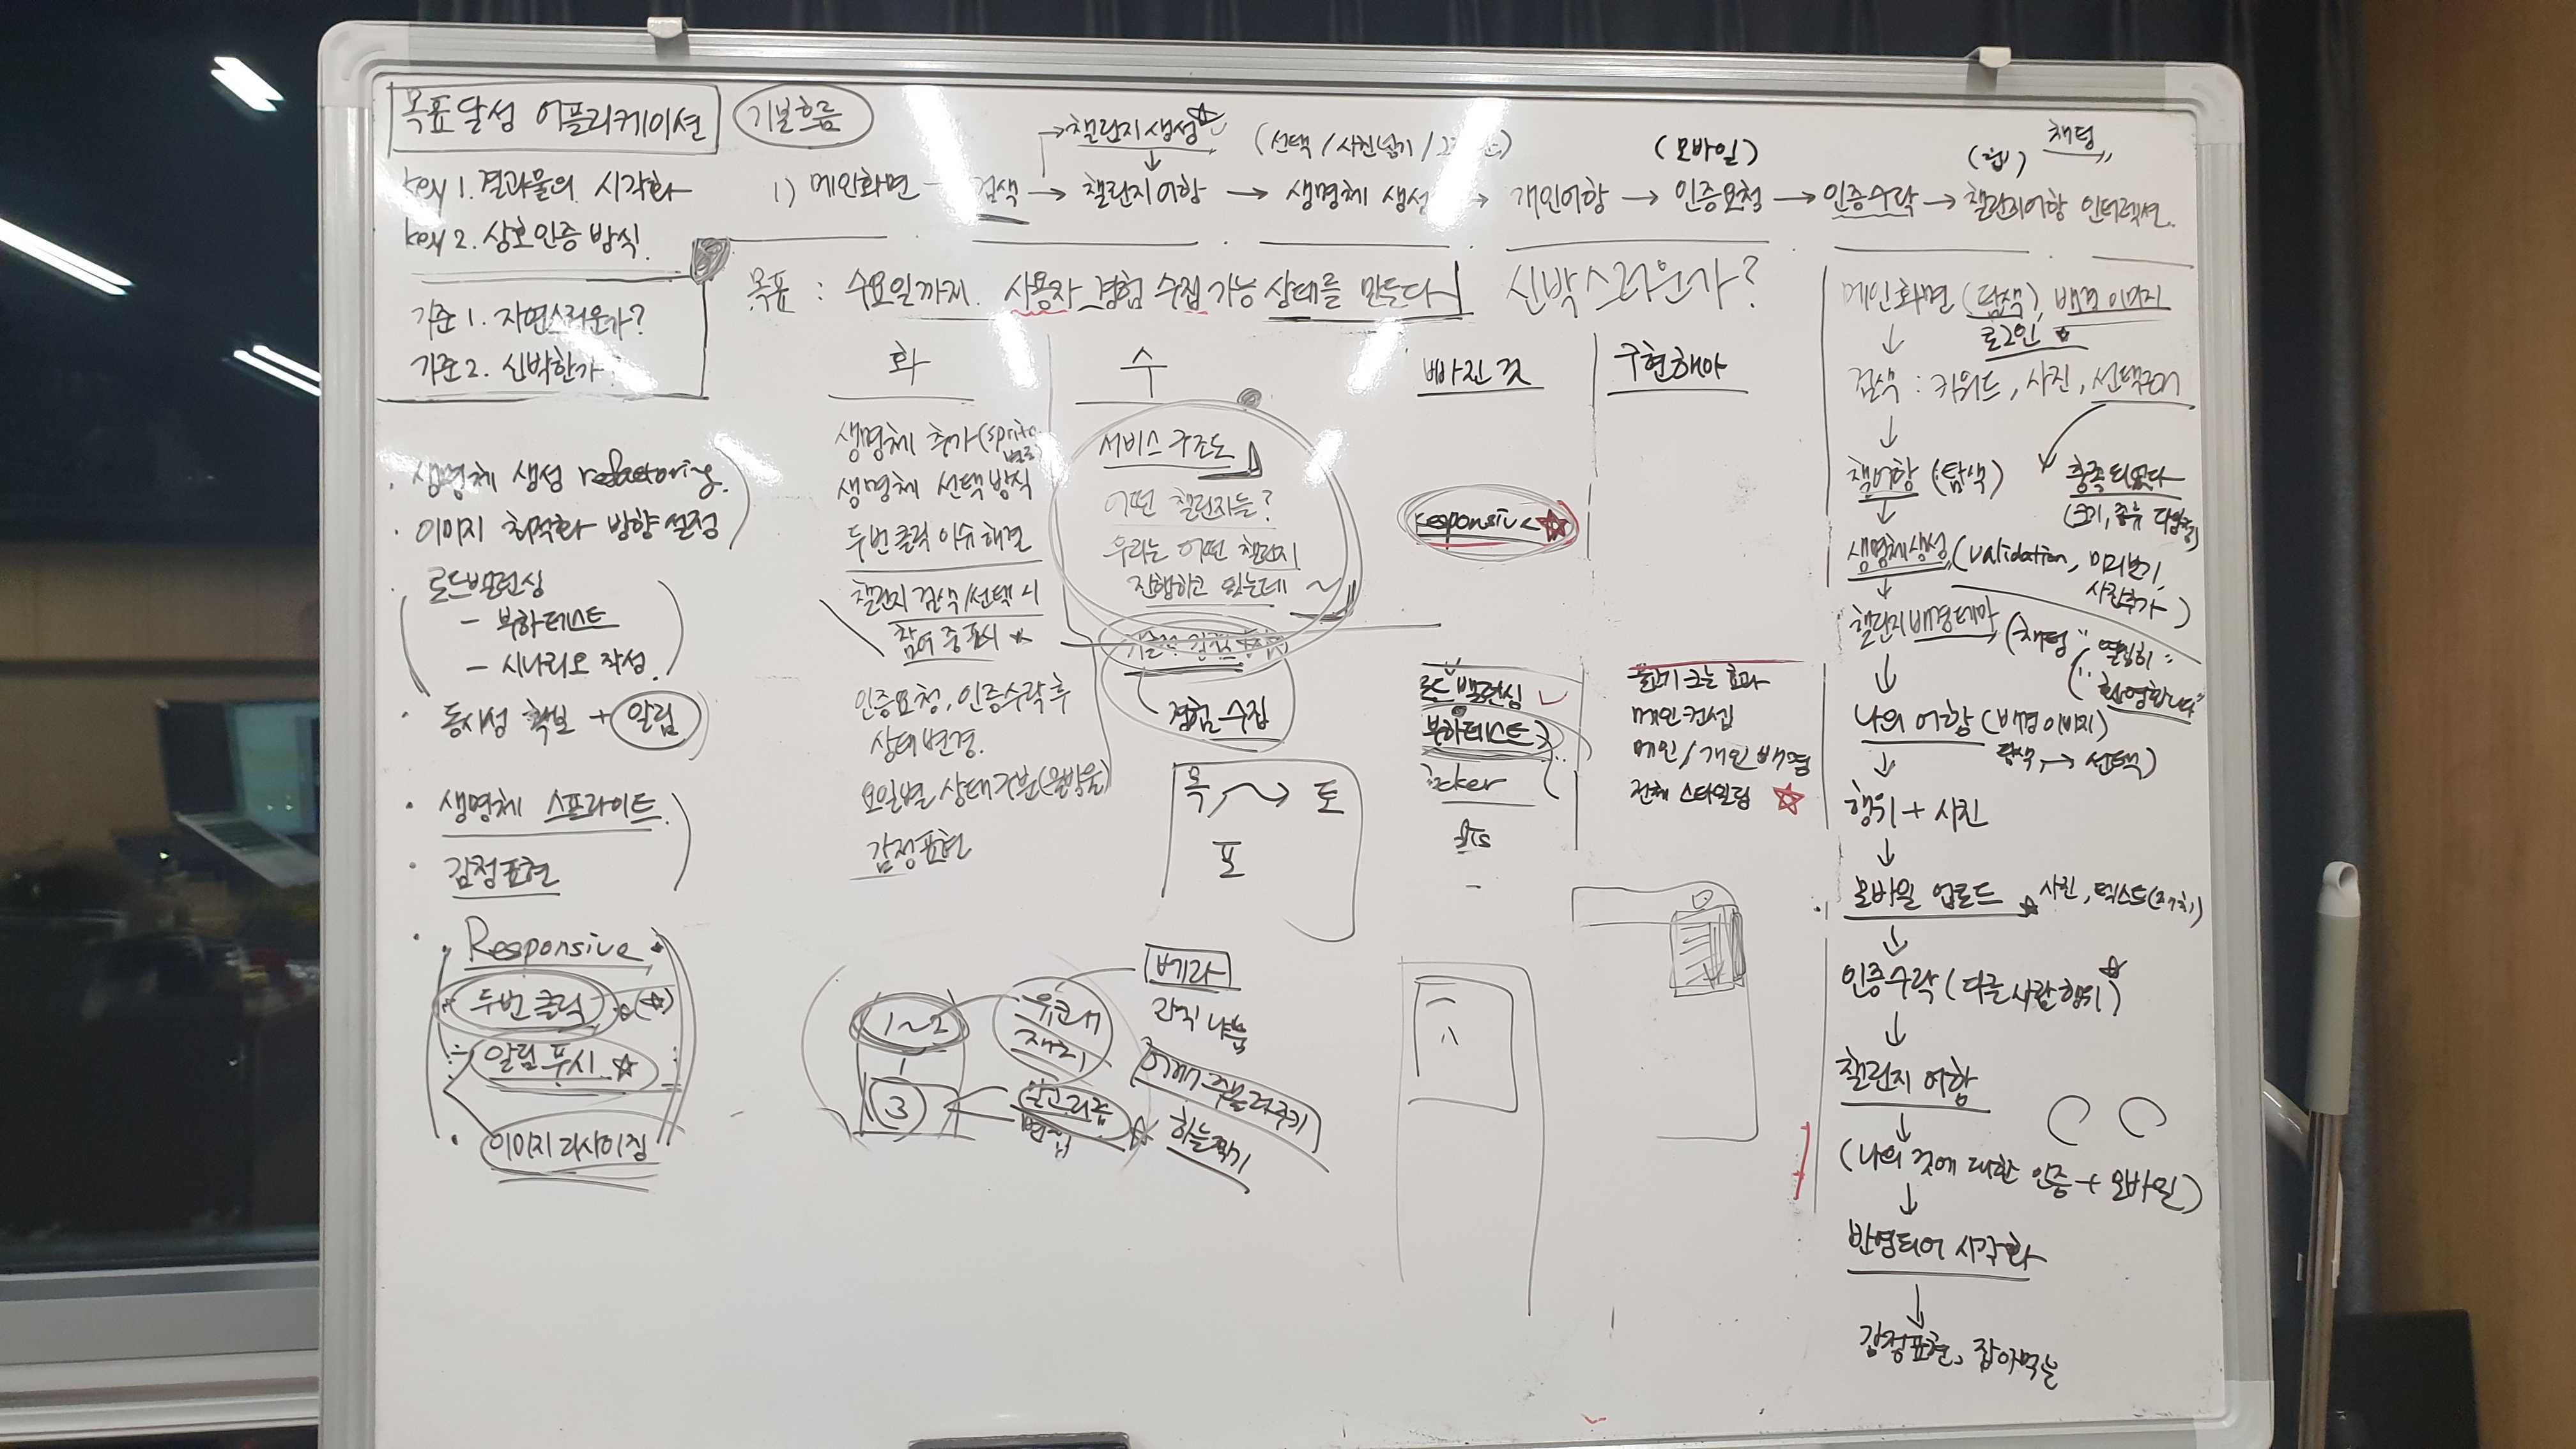 목표달성 어플리케이션
key 1. 결과물의 시각화
key 2. 상호인증 방식.
기준 1. 자연스러운가?
기준 2. 신박한가?
기본흐름
→ 챌린지 생성 ☆
(선택 / 사진넣기 /
(모바일)
(웹)
채팅
1) 메인화면 - 검색 → 챌린지어항 → 생명체 생성 → 개인어항 → 인증요청 → 인증수락 → 챌린지어항 인터렉션.
목표 : 수요일까지. 사용자 경험 수집 가능 상태를 만든다
신박스러운가?
· 생명체 생성 refactoring.
· 이미지 최적화 방향 설정
· 로드밸런싱
- 부하테스트
- 시나리오 작성.
· 동시성 확보 + 알림
· 생명체 스프라이트.
· 감정표현
· Responsive
두번 클릭 (☆)
알림 푸시 ☆
· 이미지 리사이징
화
생명체 추가
생명체 선택 방식
두번 클릭 이슈 해결
챌린지 검색/선택 시
참여 중 표시 ☆
인증요청, 인증수락 후
상태변경.
요일별 상태구분(물방울)
감정표현
수
서비스 구조도
어떤 챌린지들?
우리는 어떤 챌린지
진행하고 있는데 ~
경험 수집
목 → 토
포
1~2
3
알고리즘
면접
베라
하늘찍기
빠진 것
responsive ☆
로드 밸런싱
부하테스트
구현해야
물고기 크는 효과
메인컨셉
메인/개인 배경
전체 스타일링 ☆
메인화면 (탐색), 배경 이미지
로그인 ☆
↓
검색 : 키워드, 사진,
↓
챌어항 (탐색)
충족되었다
↓
생명체생성 (validation, 미리보기,
사진추가)
↓
챌린지 배경테마 (채팅 "열심히"
"환영합니다"
↓
나의 어항 (배경이미지)
탐색 → 선택)
↓
행위 + 사진
↓
모바일 업로드 ☆ 사진, 텍스트
↓
인증수락 (다른사람 행위) ☆
↓
챌린지 어항
↓
(나의 것에 대한 인증 + 모바일)
↓
반영되어 시각화
↓
감정표현, 잡아먹는